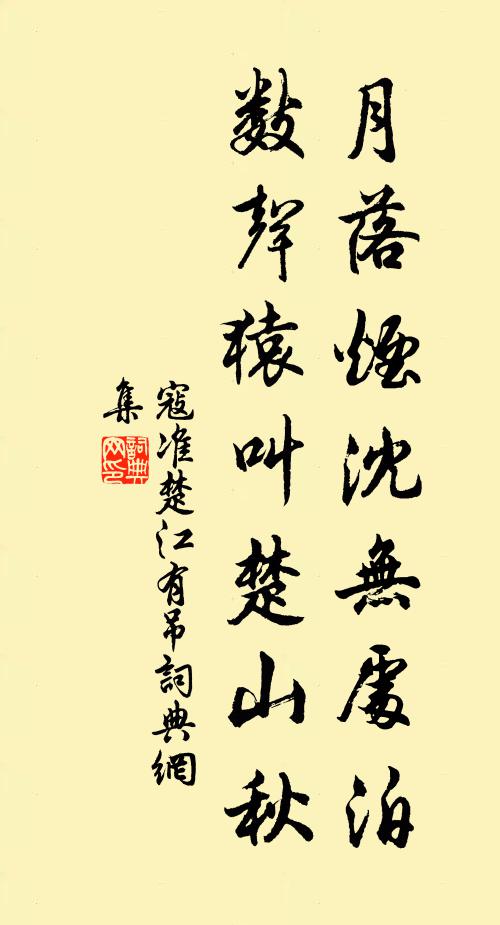 月落煙沈無處泊
數聲猿叫楚山秋
寇准楚江有吊詞典網
集
詞典
网印